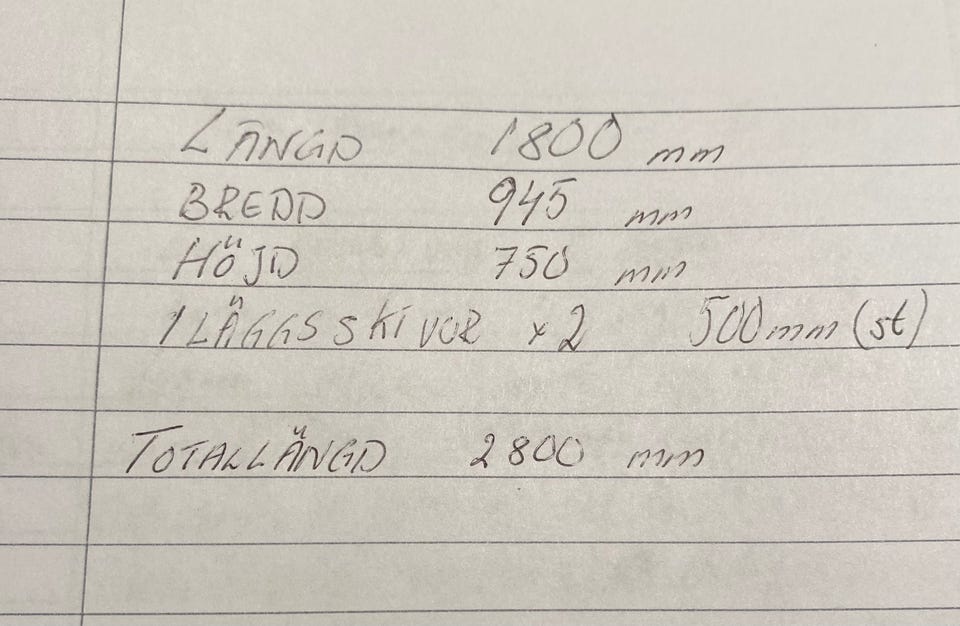 LÄNGD 1800 mm
BREDD 945 mm
HÖJD 750 mm
ILÄGGSSKIVOR x2 500mm (st)
TOTALLÄNGD 2800 mm